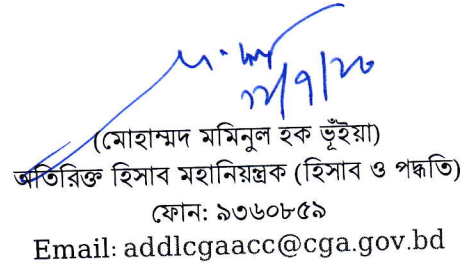 (মোহাম্মদ মমিনুল হক ভূঁইয়া)
অতিরিক্ত হিসাব মহানিয়ন্ত্রক (হিসাব ও পদ্ধতি)
ফোন: ৯৩৬০৮৫৯
Email: addlcgaacc@cga.gov.bd